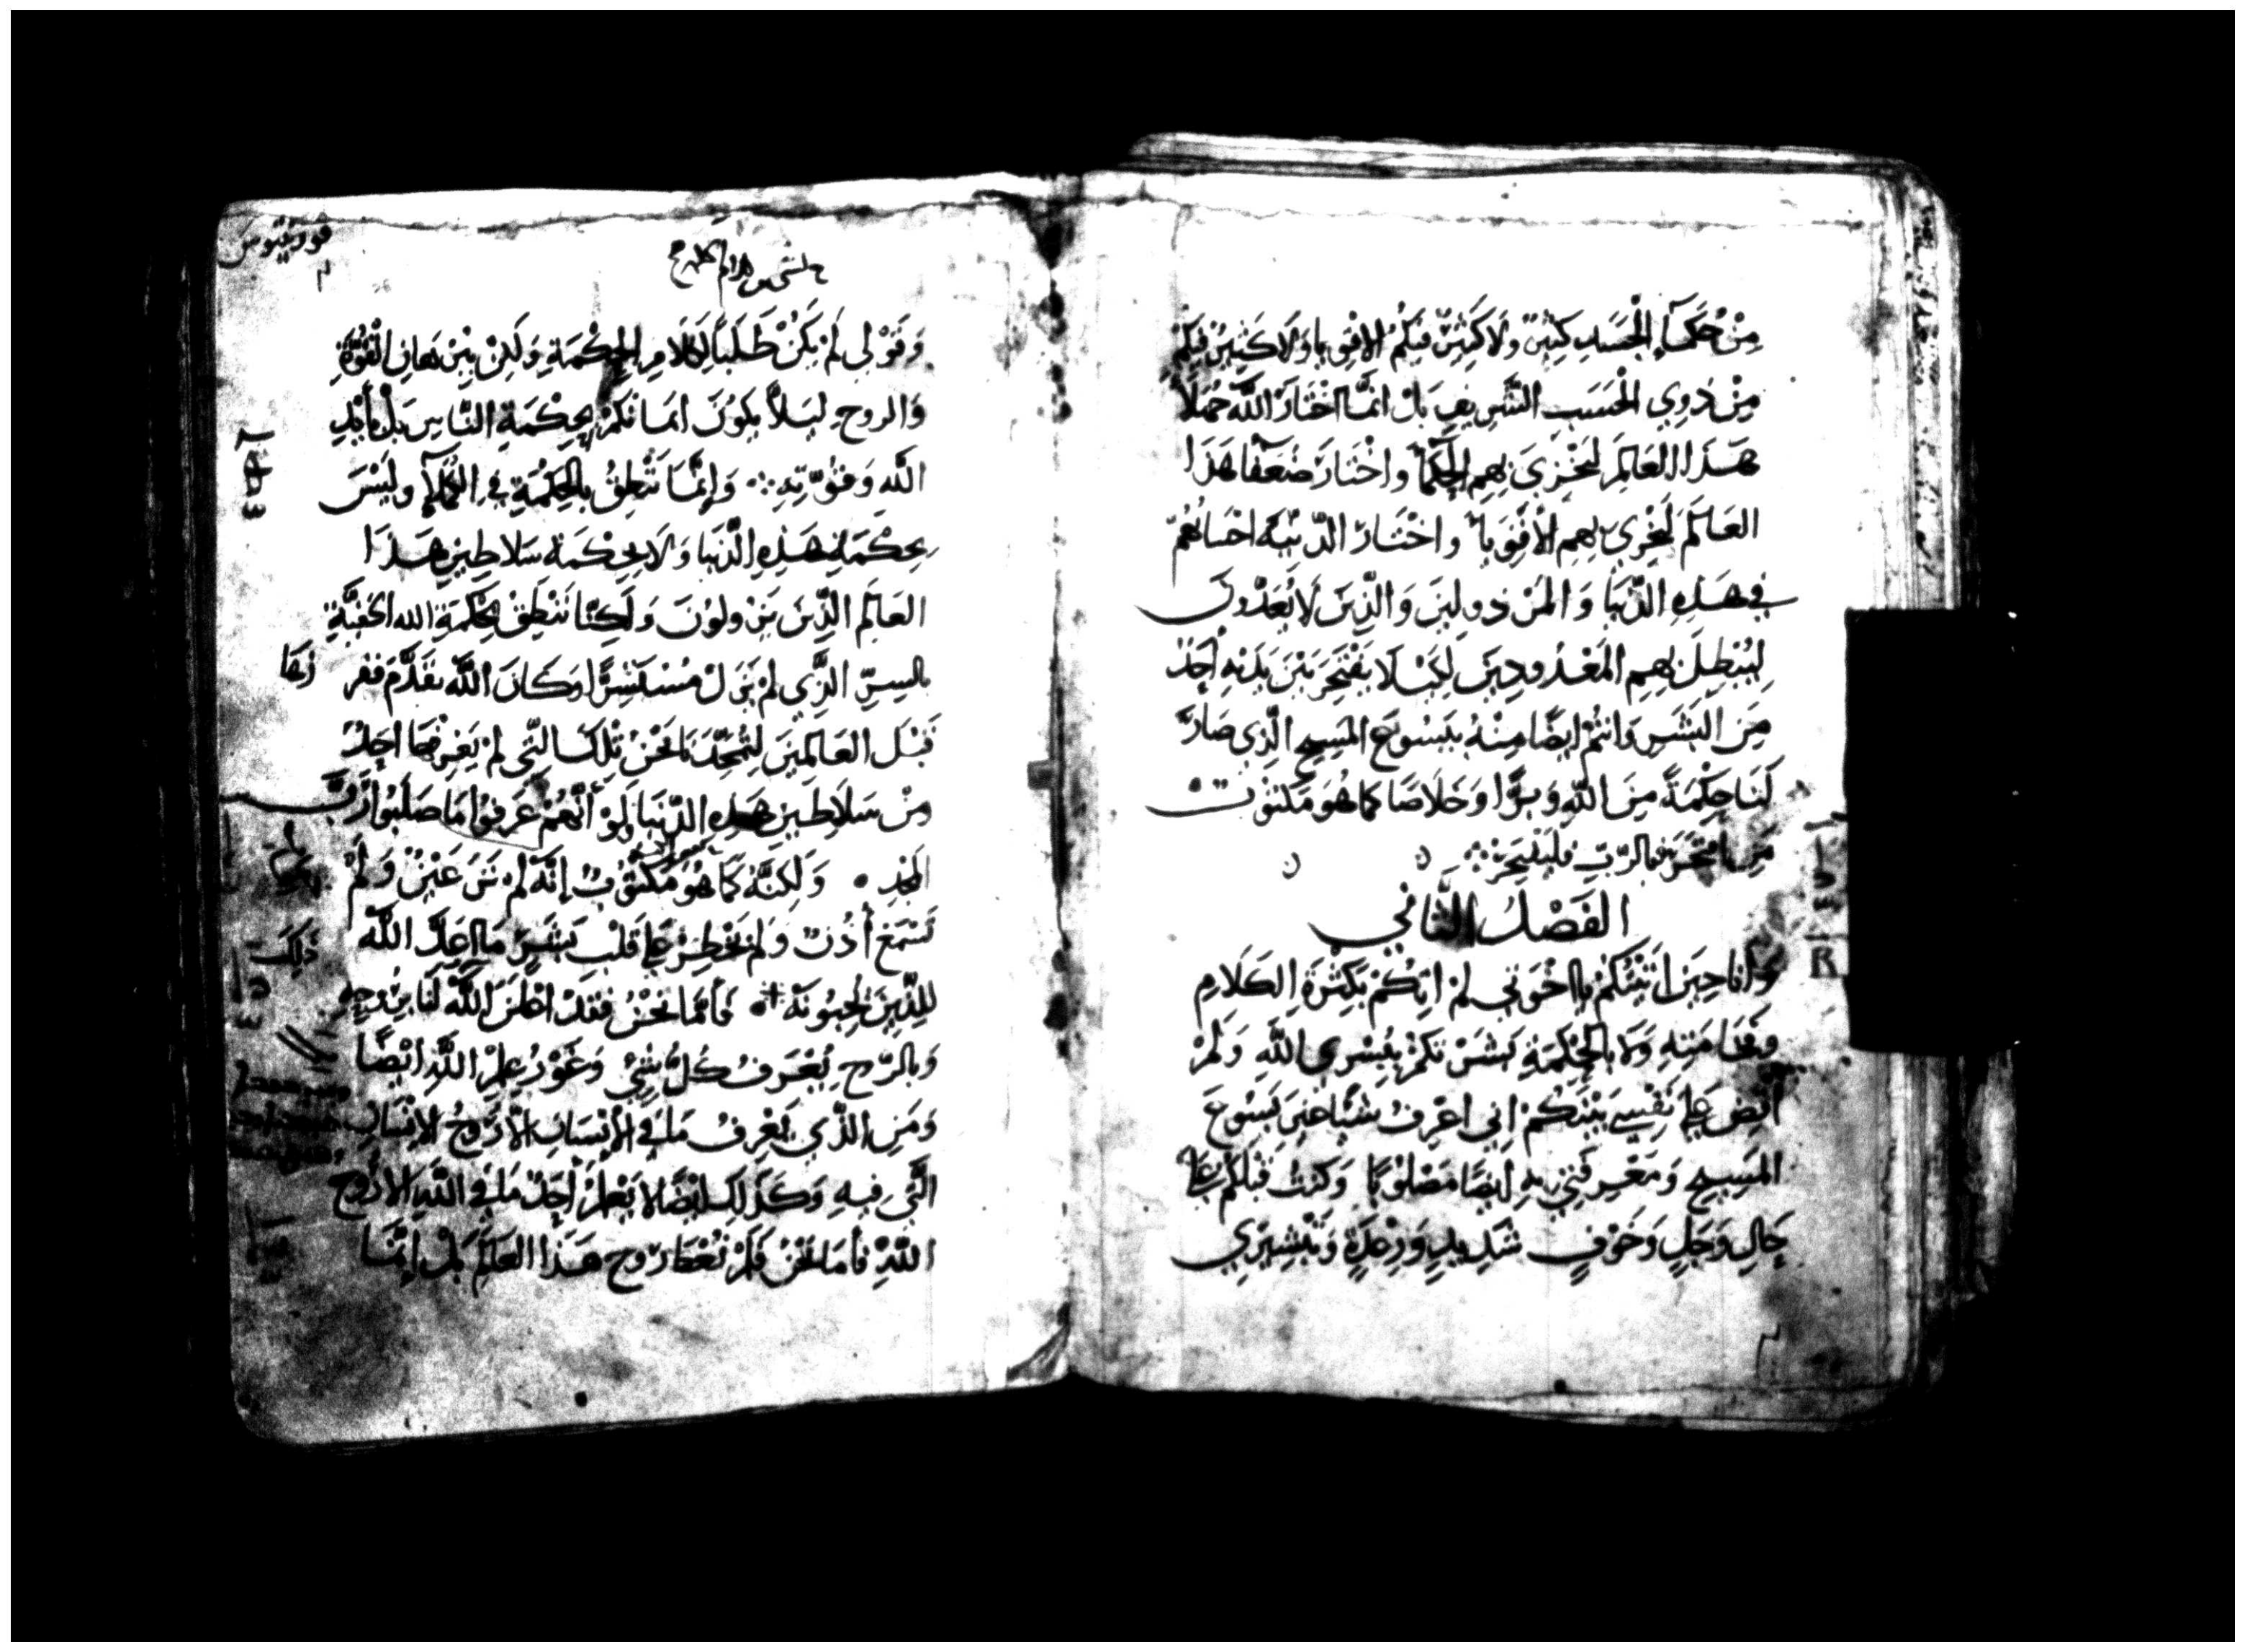 مِنْ حُكَمَآءِ الْجَسَدِ كَثِيْنٌ وَلَا كَثِيْرٌ فِيكُمُ الاقوِيا وَلَا كَثِيرٌ فِيكُمْ
مِنْ ذَوِي الْحَسَبِ الشَّرِيفِ بَلْ انَّمَا اخْتَارَ اللَّه جُهَلَا
هَذَا العَالِمَ لَيُخْزِيَ بِهِمِ الحُكَمَا وَاخْتَارَ ضُعَفَا هَذَا
العَالَمَ لَيُخْزِيَ بِهِمِ الأَقْوِيَا واخْتَارَ الدَّنِيَّة احْسَابُهُمْ
فِي هَذِهِ الدُّنْيَا وَالمَرْذُولِينَ وَالَّذِينَ لَا يُعَدُّونَ
لِيُبْطِلَ بِهِمِ المَعْدُودِينَ لِكَيْلَا يَفْتَخِرَ بَيْنَ يَدَيْهِ أَحَدٌ
مِنَ البَشَرِ وَانتُمْ ايضًا مِنْهُ بِيَسُوعَ المَسِيحِ الَّذِي صَارَ
لَنَا حِكْمَةً مِنَ اللَّهِ وَبِرًّا وَخَلَاصًا كمَا هُوَ مَكتُوبٌ
مَنِ افتَخَرَ فَبالرَّبِّ فليَفتَخِرْ
الفَصْلُ الثَّانِي
وَأَنَا حِينَ اتَيْتُكُمْ يااخْوَتِي لمْ اتِكُمْ بَكَثْرَةِ الكَلَامِ
وَلَا بِالْحِكْمَةِ بَشَرْتكُمْ بِبُشْرى اللَّهِ وَلَمْ
أَقْضِ عَلَى نَفْسِي بَيْنَكُمْ انِي اعْرِفُ شَيًا غَيرَ يَسُوعَ
المَسِيحِ وَمَعْرِفَتِي بِهِ ايضًا مَصْلُوبًا وَكنتُ قِبَلَكُمْ عَلَى
حَالِ وَجَلٍ وَخَوْفٍ شَدِيدٍ وَرِعْدَةٍ وَتَبْشِيرِي
قورنتيوس
وَقَوْلِي لَمْ يَكُنْ طَلَبًا لِكَلَامِ الحِكْمَةِ وَلَكِنْ بِبُرْهَانِ الْقُوَّةِ
وَالروحِ لِيَلاَّ يَكُونَ ايمَانكُمْ بِحِكْمَةِ النَّاسِ بَلْ بأَيْدِ
اللَّهِ وَقُوَّتِهِ وَإِنَّمَا نَنْطِقُ بِالحِكْمَةِ فِي الكُمَلَآ وَلَيْسَ
بِحِكْمَةِ هَذِهِ الدُّنيَا وَلَا بِحِكْمَة سَلَاطِينِ هَذَا
العَالَم الَّذِينَ يَزُولُونَ وَلَكِنَّا نَنْطِقُ بِحِكْمَةِ الله الخَفِيَّةِ
بالسِرِّ الَّذِي لَمْ يَزَلْ مُسْتَتِرًا وَكَانَ اللَّه تقَدَّمَ ففر
زهَا
قَبْلَ العَالَمِينَ لِتُمَجِّدَنَا نَحْنُ تِلْكَ التِّي لَمْ يَعْرِفْهَا احَدٌ
مِنْ سَلَاطِينِ هَذِهِ الدُّنْيَا وَلَوْ أَنَّهُمْ عَرَفُوا مَا صَلَبُوا رَبَّ
المَجْدِ وَلَكِنَّهُ كمَا هُوَ مَكتُوبٌ إِنَّهُ لَمْ تَرَ عَيْنٌ وَلَمْ
تَسْمَعْ أُذُنٌ وَلَمْ يَخْطِرْ عَلَى قَلْبِ بَشَرٍ مَا اعَدَّ اللَّه
ذَلِكَ
لِلَّذِينَ يُحِبُونَهُ فَأَمَّا نَحْنُ فَقَدْ اظْهَرَ اللَّه لَنَا بِرُوحِهِ
وَبِالرّوحِ يُعْرَفُ كُلُّ شَيْ وَغَوْرُ عِلْمِ اللَّهِ ايْضًا
وَمَنِ الَّذِي يَعْرِفُ مَا فِي الإِنْسَانِ الاَّ رُوحُ الاِنْسَانِ
الَّتِي فِيهِ وَكَذَلِكَ ايْضًا لَا يَعْلَمْ أَحَدٌ مَا فِي اللَّهِ الاَّ رُوحُ
اللَّهِ فَأَمَا نَحْنُ فَلَمْ نُعْطَا رُوح هَذَا العَالَمِ بَلْ إِنَّمَا